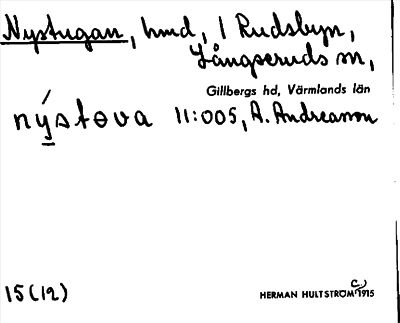 Nystugan, hmd, i Rudsbyn,
Långseruds sn,
Gillbergs hd, Värmlands län
nýstova 11:005, A. Andreasson
15(12)
HERMAN HULTSTRÖM C) 1915